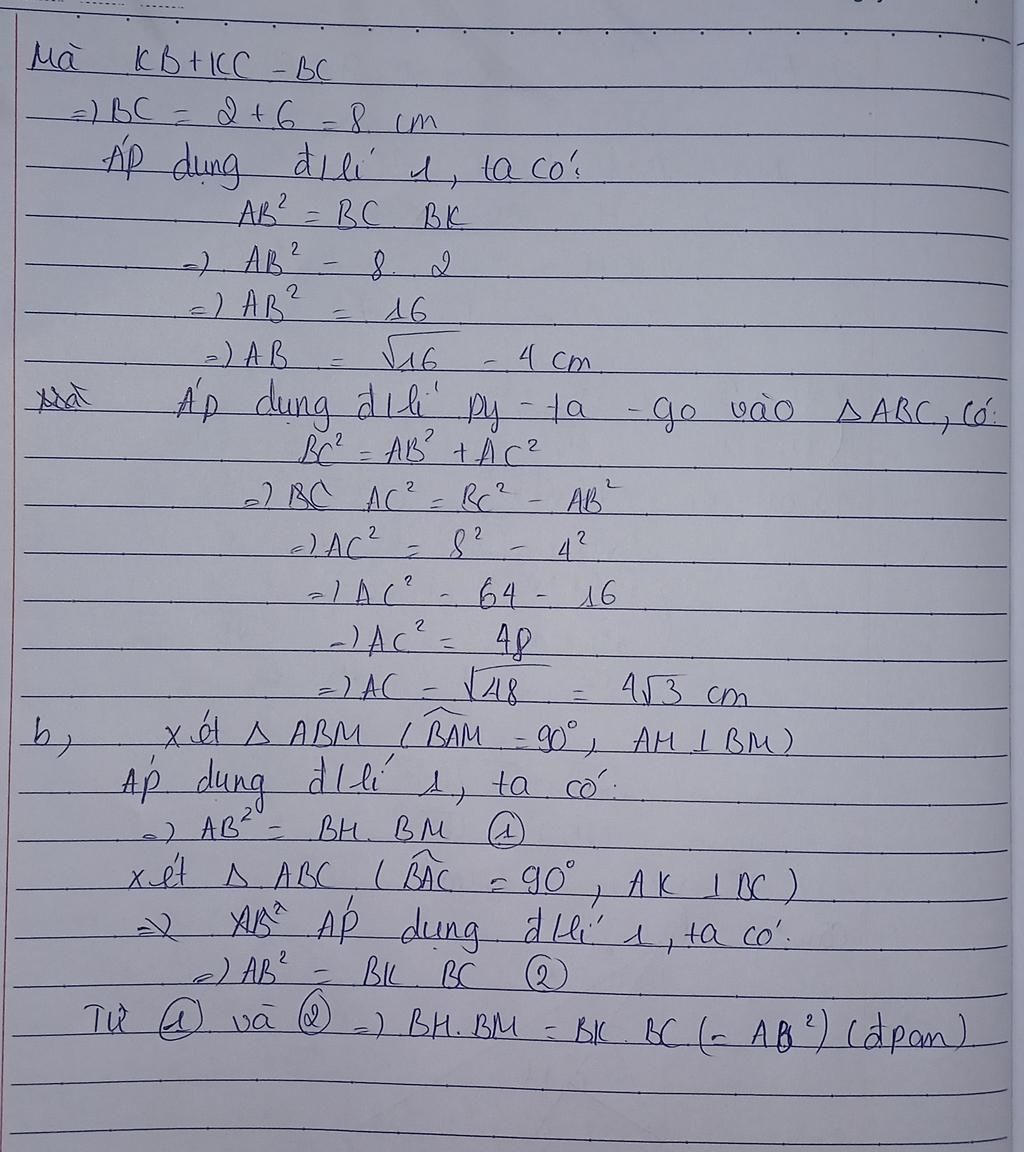 Mà KB+KC = BC
=) BC = 2+6 = 8 cm
Áp dụng đ/lí 1, ta có:
AB² = BC . BK
=) AB² = 8 . 2
=) AB² = 16
=) AB = √16 = 4 cm
Áp dụng đ/lí py-ta-go vào △ABC, có:
BC² = AB² + AC²
=) BC AC² = BC² - AB²
=) AC² = 8² - 4²
=) AC² = 64 - 16
=) AC² = 48
=) AC = √48 = 4√3 cm
b, Xét △ ABM (BAM = 90°, AH ⊥ BM)
Áp dụng đ/lí 1, ta có:
=) AB² = BH. BM ①
Xét △ ABC (BAC = 90°, AK ⊥ BC)
=) AB² Áp dụng đ/lí 1, ta có:
=) AB² = BK . BC ②
Từ ① và ② =) BH.BM = BK . BC (= AB²) (đpcm)